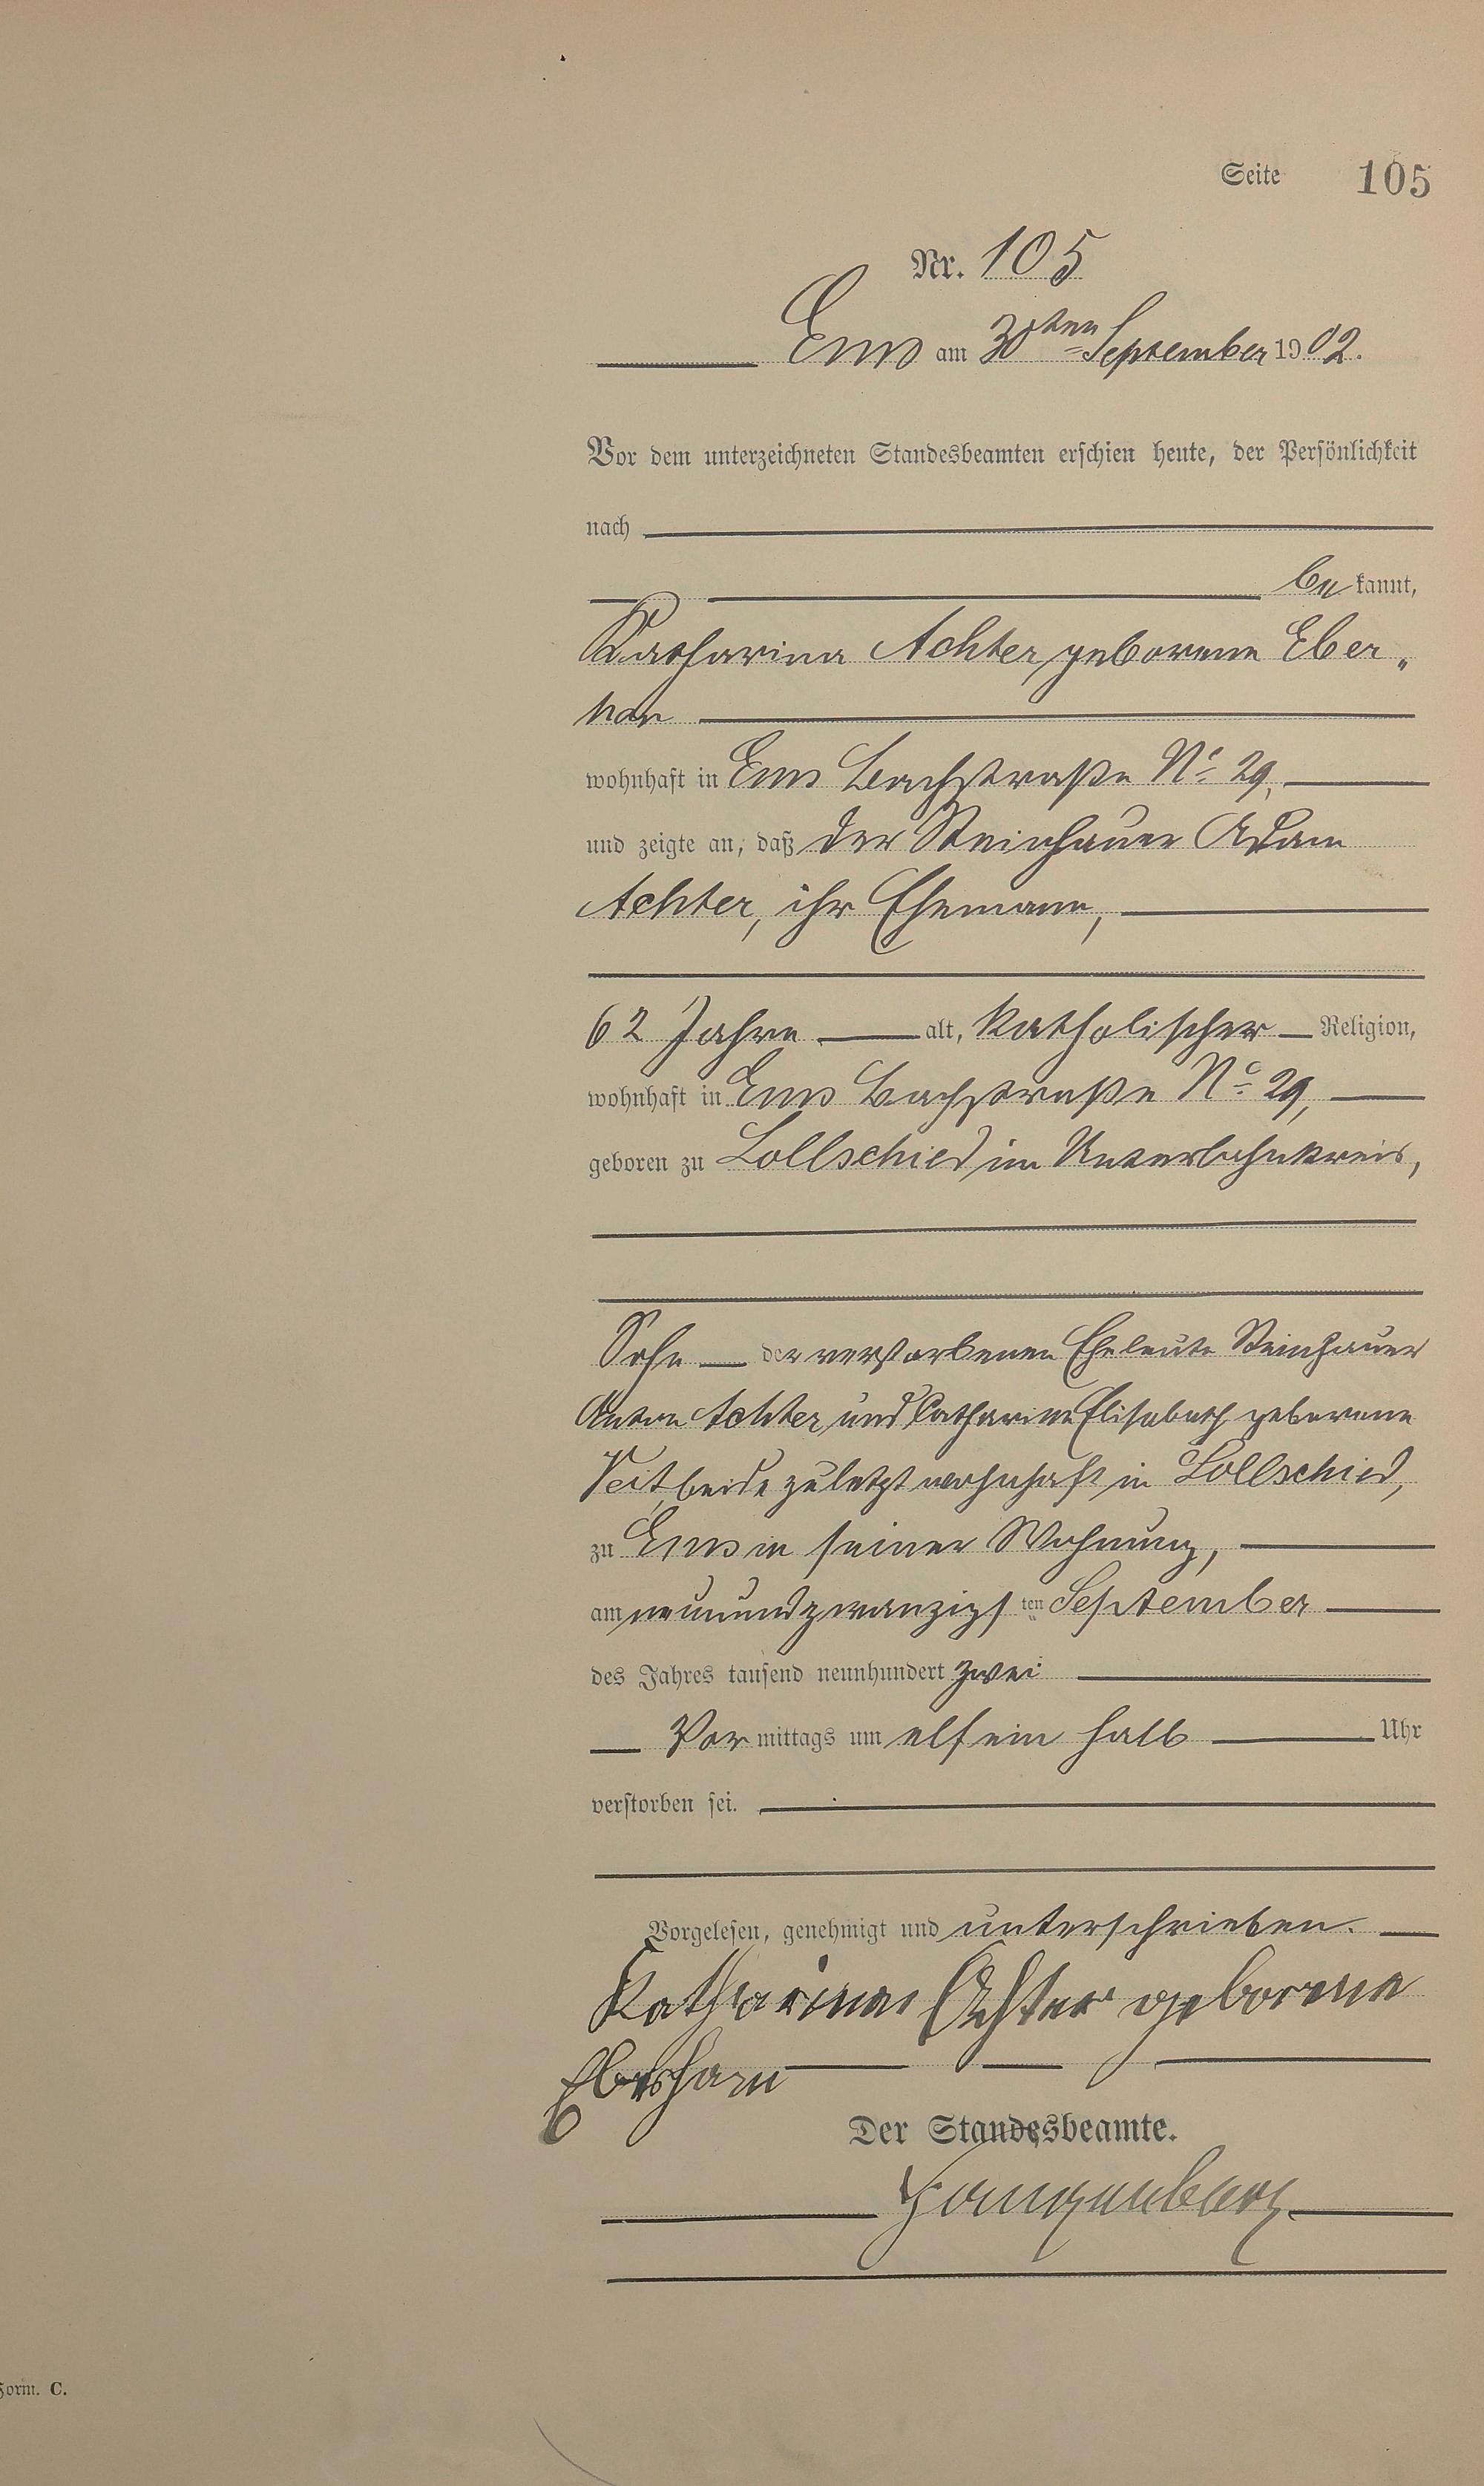 Seite 105
Nr. 105
Ems am 30ten September 1902.
Vor dem unterzeichneten Standesbeamten erschien heute, der Persönlichkeit
nach
be kannt,
Katharina Achter geborene Eber„
han
wohnhaft in Ems Bachstraße No 29,
und zeigte an, daß der Steinhauer Adam
Achter, ihr Ehemann,
62 Jahre alt, katholischer Religion,
wohnhaft in Ems Bachstraße No 29,
geboren zu Lollschied im Unterlahnkreis,
Sohn der verstorbenen Eheleute Steinhauer
Anton Achter und Katharina Elisabeth geborene
Veit, beide zuletzt wohnhaft in Lollschied,
zu Ems in seiner Wohnung,
am neunundzwanzigs ten September
des Jahres tausend neunhundert zwei
Vor mittags um elf ein halb Uhr
verstorben sei.
Vorgelesen, genehmigt und unterschrieben.
Katharina Achter geborene
Ebershan
Der Standesbeamte.
Form. C.